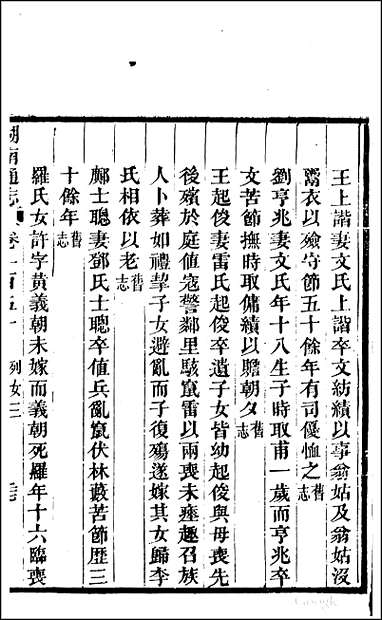 王上諧妻文氏上諧卒文紡績以事翁姑及翁姑沒
鬻衣以殮守節五十餘年有司優恤之舊志
劉亨兆妻文氏年十八生子時取甫一歲而亨兆卒
文苦節撫時取傭績以贍朝夕舊志
王起俊妻雷氏起俊卒遺子女皆幼起俊與母喪先
後殯於庭値寇警鄰里駭竄雷以兩喪未瘞趣召族
人卜葬如禮挈子女避亂而子復殤遂嫁其女歸李
氏相依以老舊志
鄺士聰妻鄧氏士聰卒値兵亂竄伏林藪苦節歷三
十餘年舊志
羅氏女許字黃義朝未嫁而義朝死羅年十六臨喪
湖南通志 卷二百五十 列女三